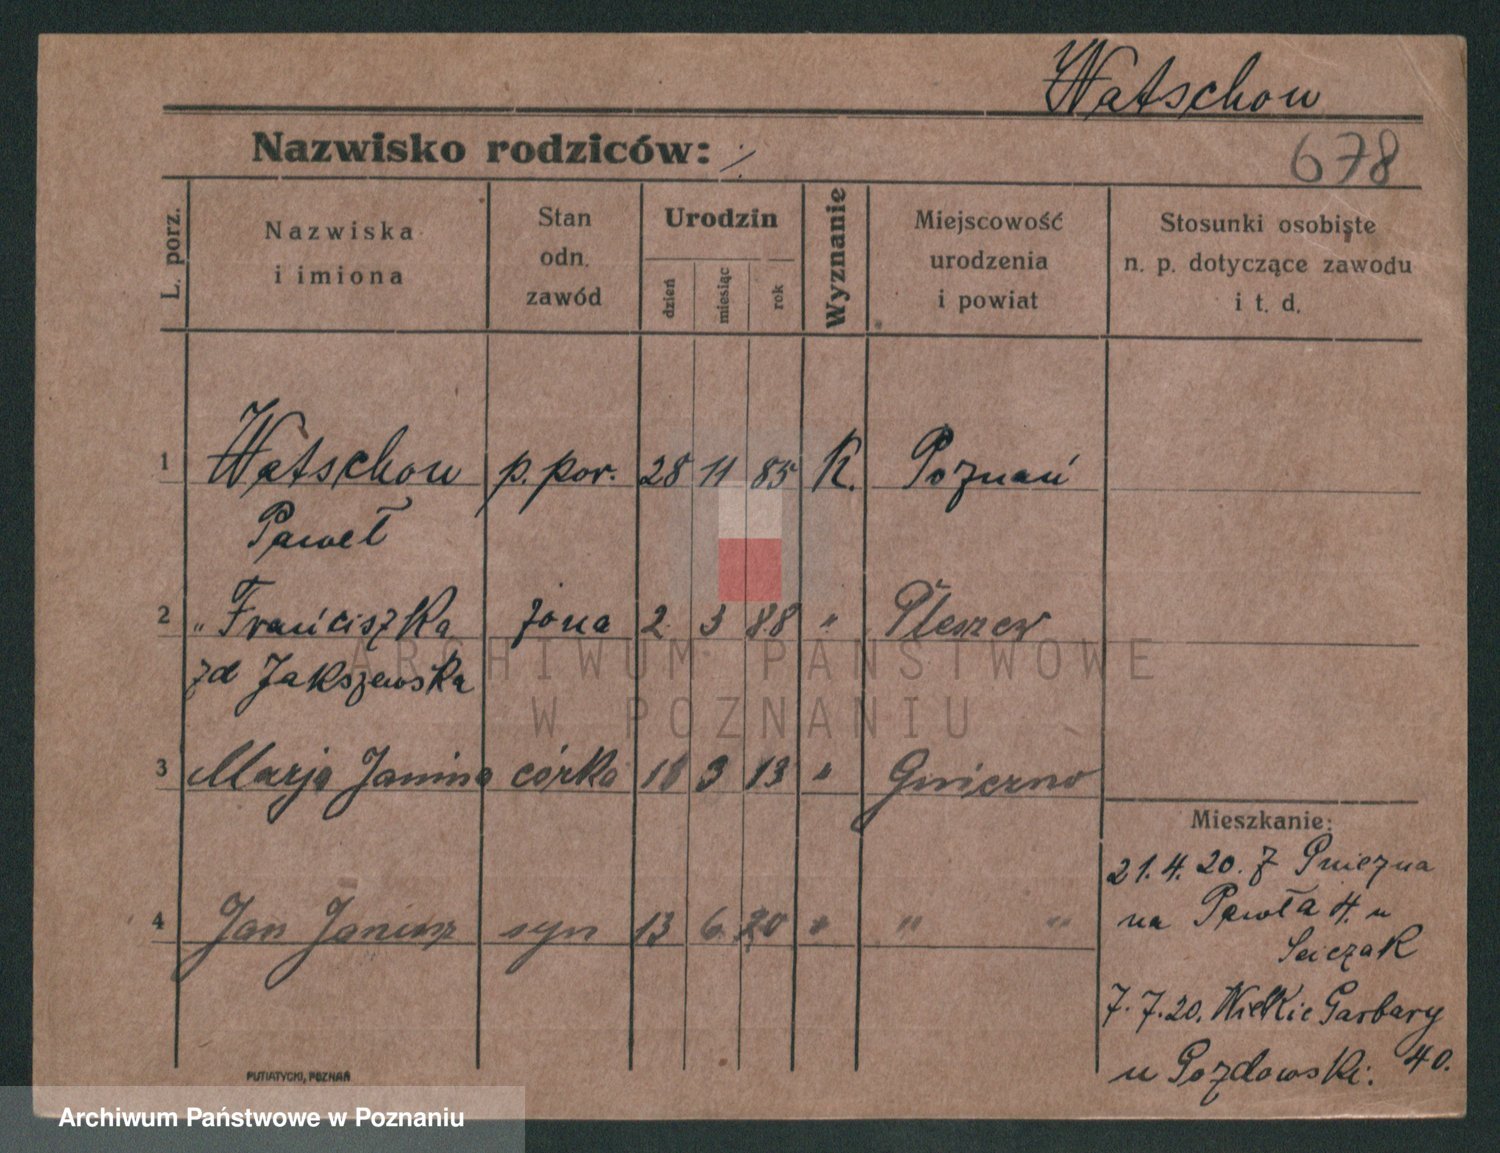 Watschow
678
Nazwisko rodziców: /
L. porz.
Nazwiska
i imiona
Stan
odn.
zawód
Urodzin
dzień
miesiąc
rok
Wyznanie
Miejscowość
urodzenia
i powiat
Stosunki osobiste
n. p. dotyczące zawodu
i t. d.
1 Watschow p. por. 28 11 85 K. Poznań
Paweł
2 " Franciszka żona 2 3 88 " Pleszew
zd Jakszewska
3 Marja Janina córka 18 3 13 " Gniezno
4 Jan Janusz syn 13 6 20 " " "
Mieszkanie:
21. 4. 20. z Gniezna
na Pawła 4. u
7. 7. 20. Wielkie Garbary
40.
u Pozdowski.
PUTIATYCKI, POZNAŃ
ARCHIWUM PAŃSTWOWE
W POZNANIU
Archiwum Państwowe w Poznaniu